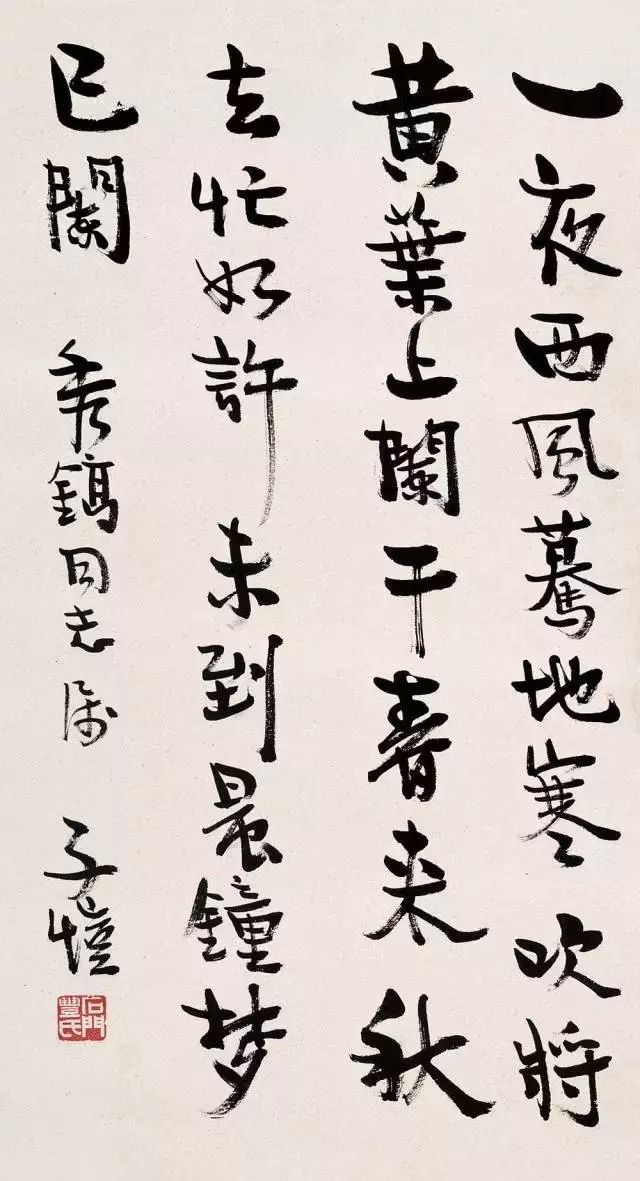 一夜西風驀地寒吹將
黄葉上闌干春来秋
去忙如許未到晨鐘梦
已闌
秀鎬同志属
子愷
石門豐氏